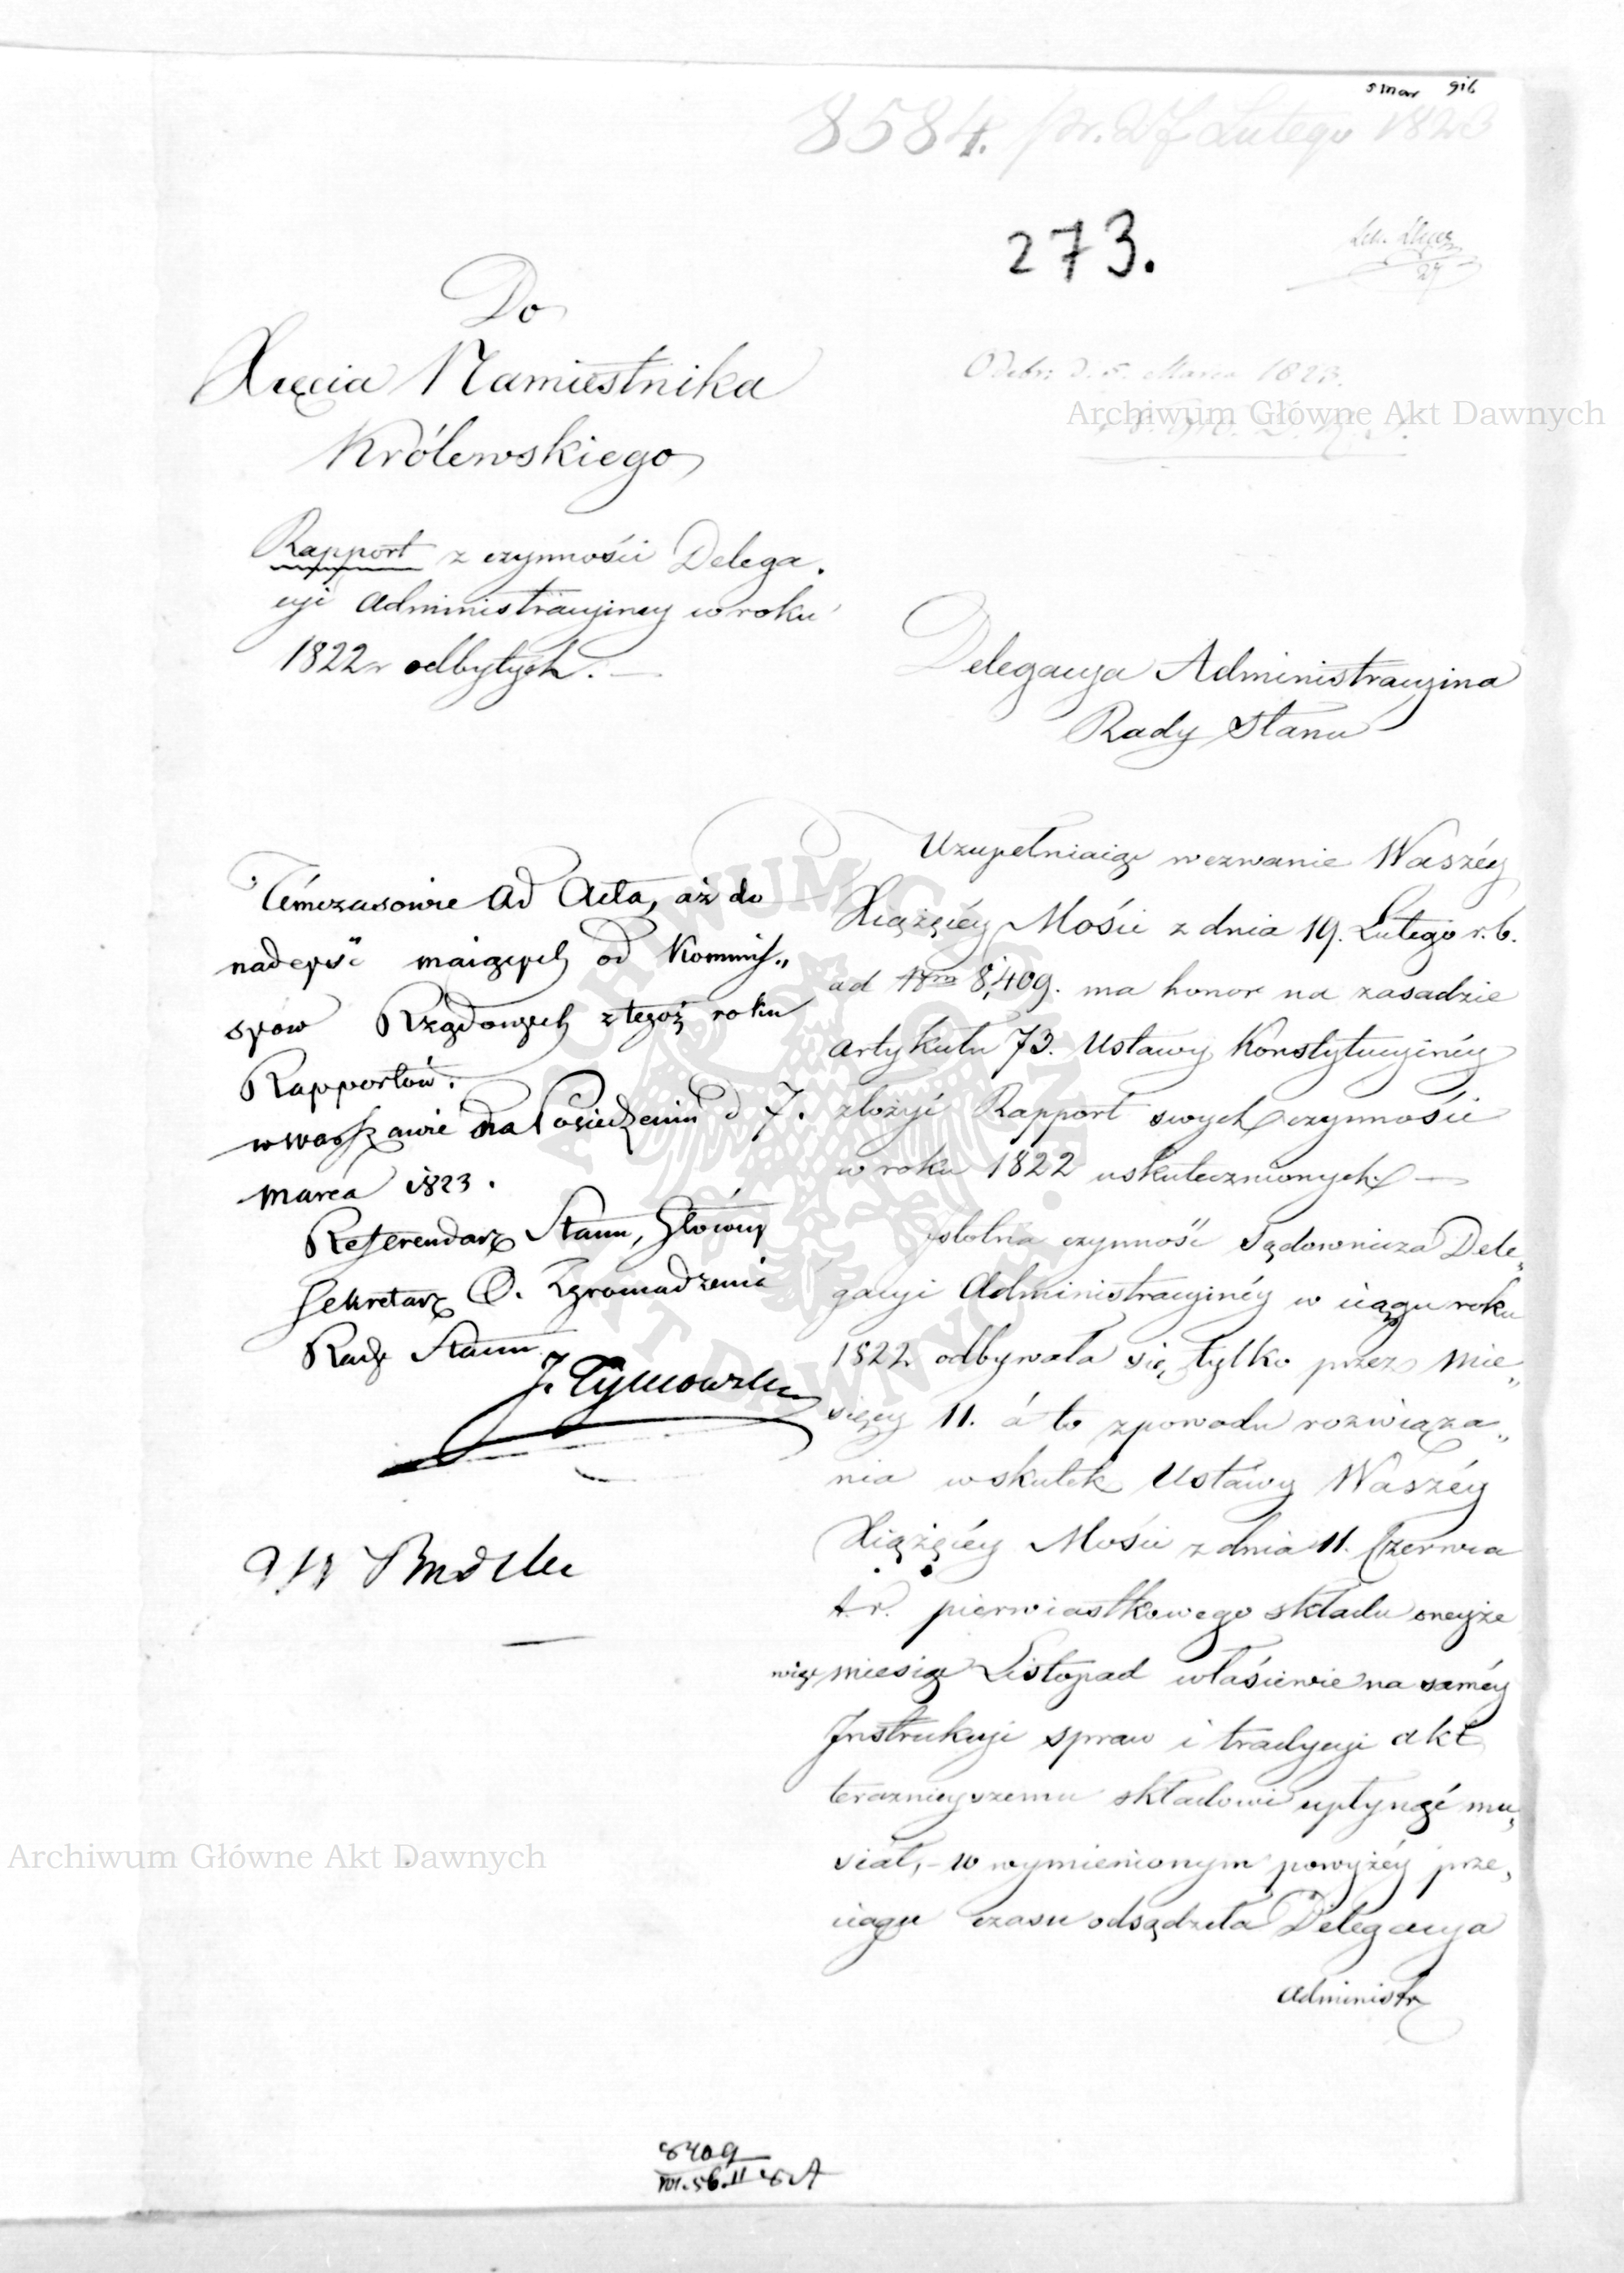 5 mar 916
8584. pr. 27 Lutego 1823
273.
27
Do
Xięcia Namiestnika
Królewskiego
Odebr: d. 5. Marca 1823.
Archiwum Główne Akt Dawnych
Rapport z czynności Delega.
cyi administracyiney w roku
1822 odbytych. —
Delegacya Administracyina
Rady Stanu
Témczasowie ad Acta, aż do
nadeyść maiących od Kommis„
syow Rządowych z tegoż roku
Rapportów.
w Warszawie na Posiedzeniu d 7.
marca 1823.
Referendarz Stanu, Główny
Sekretarz O. Zgromadzenia
Rady Stanu
J. Tymowski
Uzupełniaiąc wezwanie Waszéy
Xiążęcéy Mości z dnia 19. Lutego r. b.
ad Nrm 8,409. ma honor na zasadzie
artykułu 73. Ustawy Konstytucyinéy
złożyć Rapport swych czynności
w roku 1822 uskutecznionych. —
Istotna czynność Sądownicza Dele„
gacyi Administracyinéy w ciągu roku
1822 odbywała się tylko przez mie„
sięcy 11. á to z powodu rozwiąza„
nia w skutek Ustawy Waszéy
Xiążęcéy Mości z dnia 11. Czerwca
t. r. pierwiastkowego składu oneyże
więc miesiąc Listopad właściwie na saméy
Instrukcyi spraw i tradycyi akt
teraznieyszemu składowi upłynąć mu„
siał, – w wymienionym powyżéy prze„
ciągu czasu odsądziła Delegacya
administr
Archiwum Główne Akt Dawnych
8409
ARCHIWUM GŁÓWNE AKT DAWNYCH